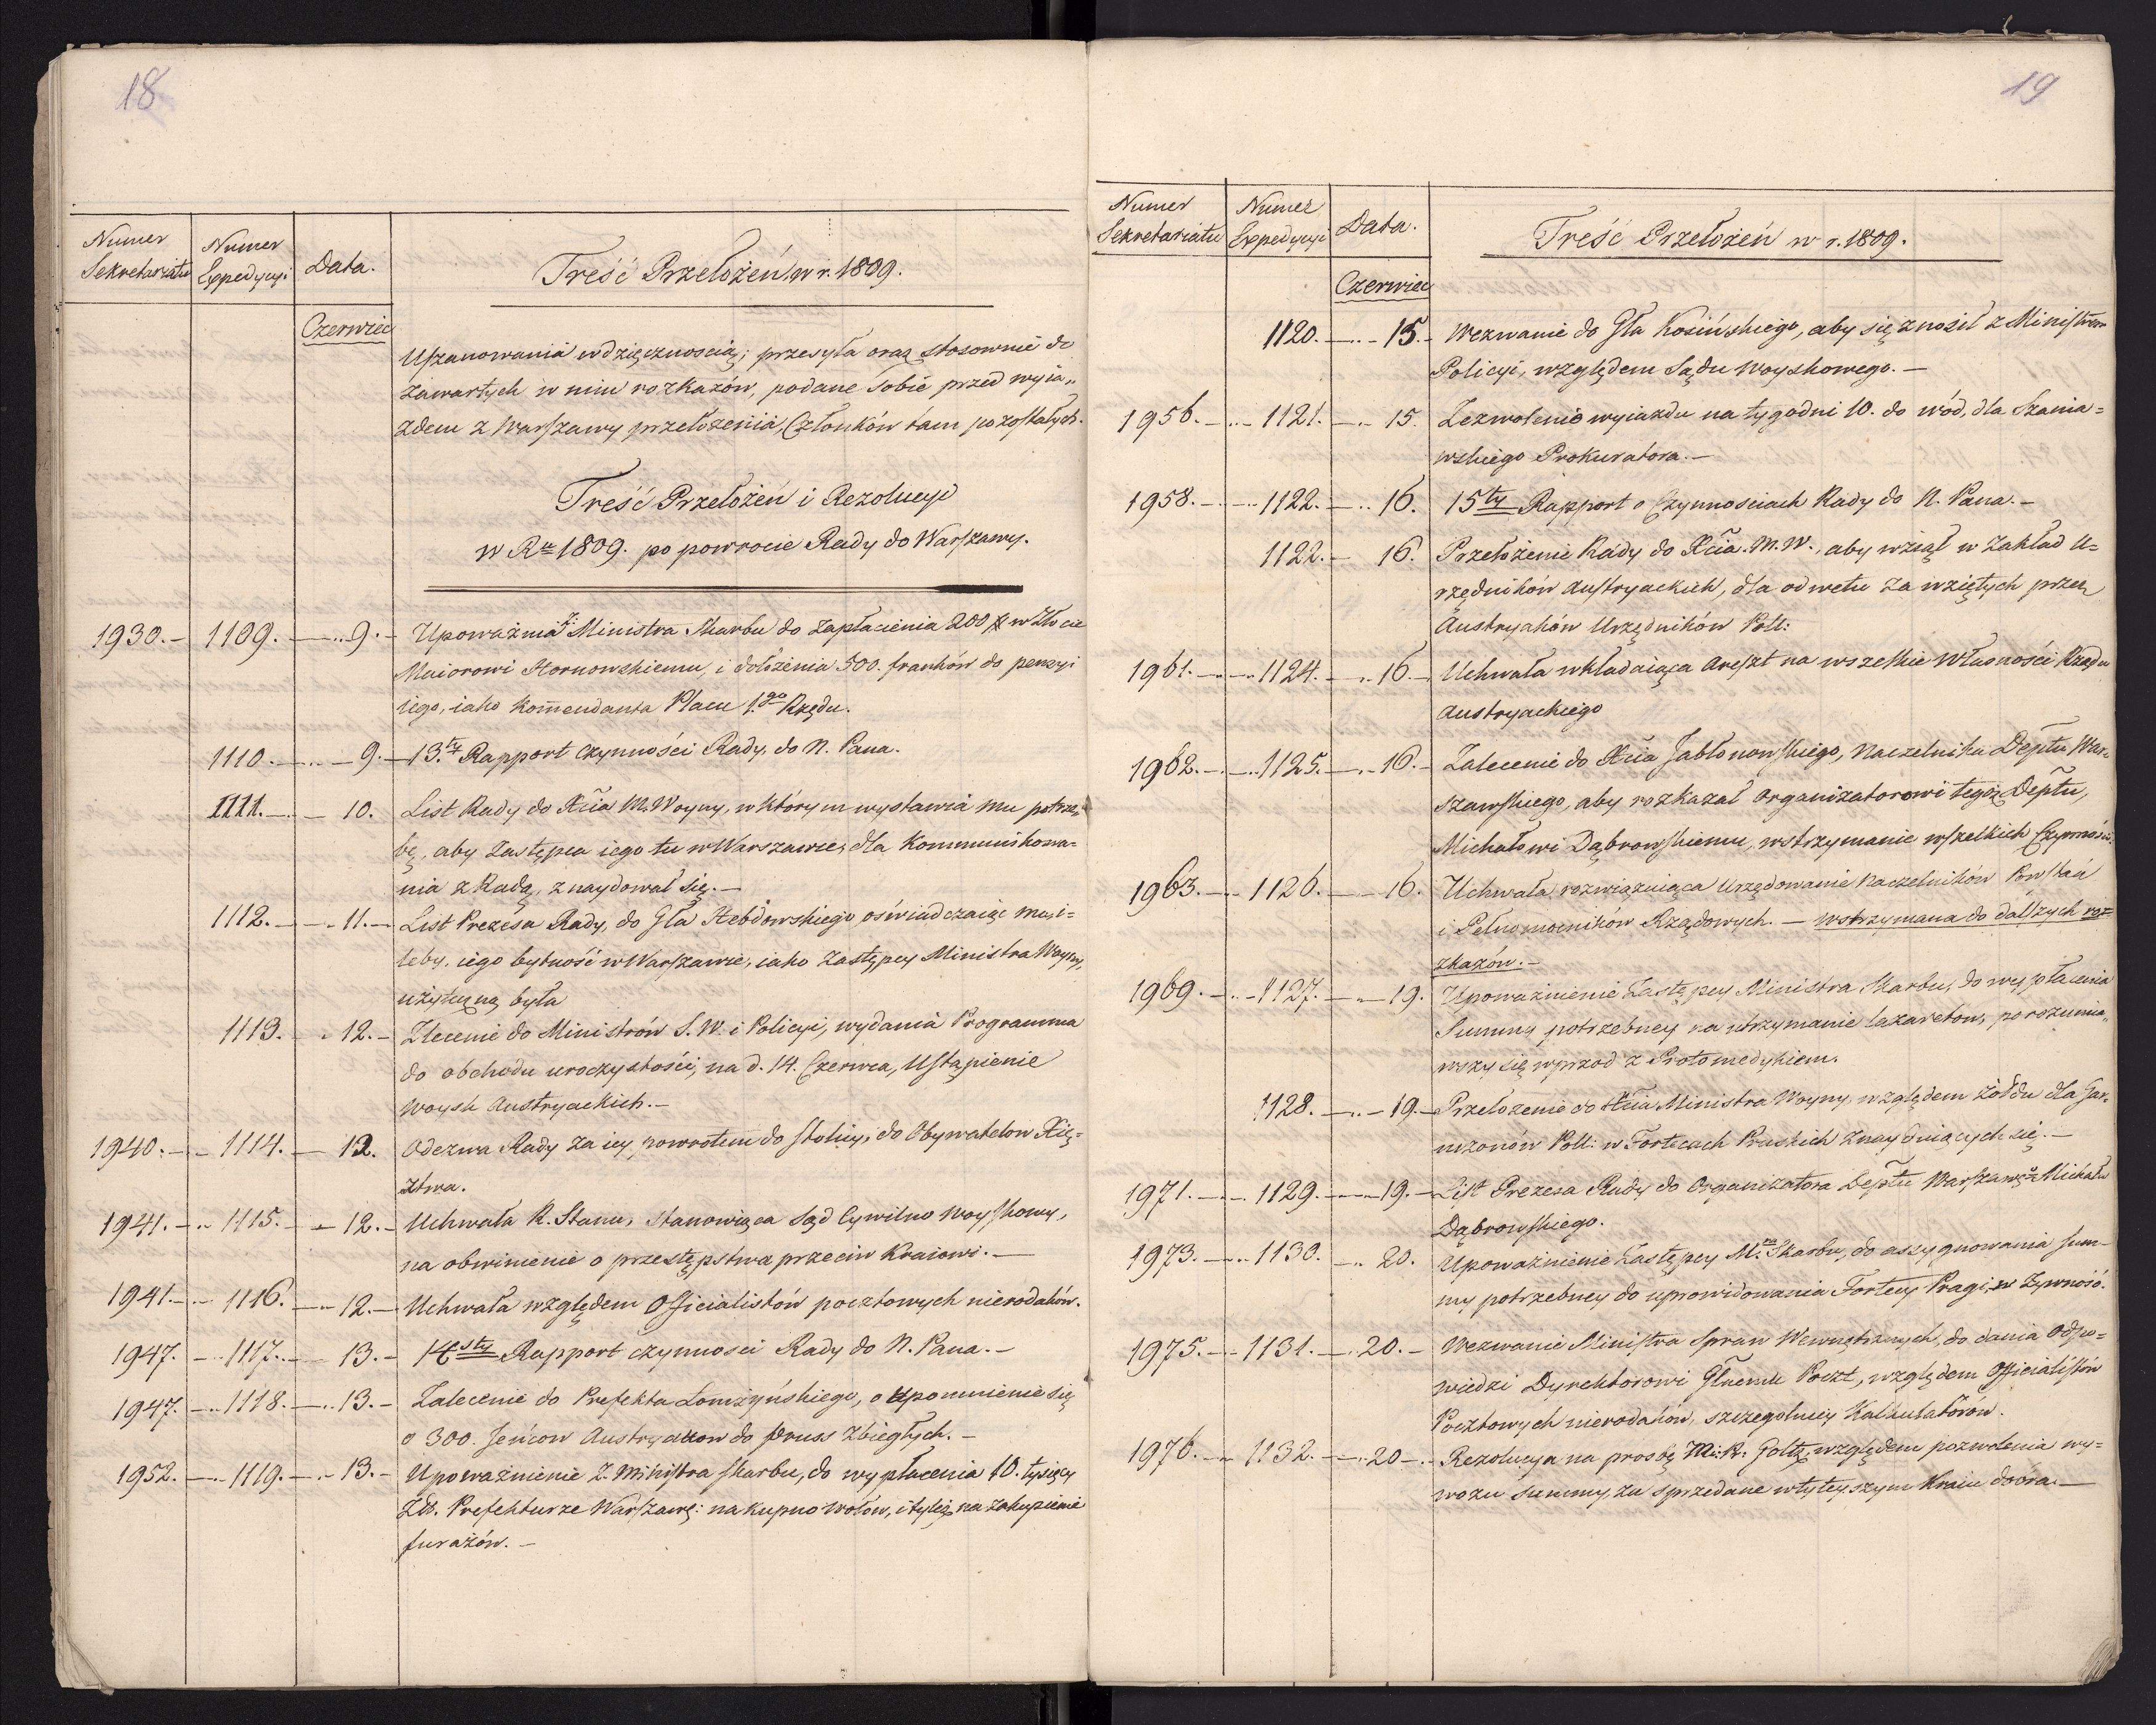 18
Numer Sekretariatu
Numer Expedycyi
Data.
Treść Przełożeń w r. 1809.
Czerwiec
Uszanowania wdzięcznością; przesyła oraz stosownie do
zawartych w nim rozkazów, podane sobie przed wyia„
zdem z Warszawy przełożenia, Członków tam pozostałych.
Treść Przełożeń i Rezolucyi
w Ru 1809. po powrocie Rady do Warszawy.
1930. 1109. 9. Upoważnia Z. Ministra Skarbu do zapłacenia 200 # w Złocie
Maiorowi Hornowskiemu, i dołożenia 500. franków do pensyi
iego, iako Kommendanta Placu 1.go Rzędu.
1110. 9. 13.ty Rapport czynności Rady, do N. Pana.
1111. 10. List Rady do Xcia M. Woyny, w którym wystawia mu potrze„
bę, aby Zastępca iego tu w Warszawie, dla Kommunikowa-
nia z Radą, znaydował się.
1112. 11. List Prezesa Rady, do Gła Hebdowskiego, oświadczaiąc mu, i-
leby, iego bytność w Warszawie, iako Zastępcy Ministra Woyny,
użyteczną była
1113. 12. Zlecenie do Ministrów S. W. i Policyi, wydania Programma
do obchodu uroczystości, na d. 14. Czerwca, Ustąpienie
Woysk Austryackich.
1940. 1114. 12. Odezwa Rady za iey powrotem do stolicy, do Obywatelow Xię=
ztwa.
1941. 1115. 12. Uchwała R. Stanu, stanowiąca Sąd Cywilno Woyskowy,
na obwinienie o przestępstwa przeciw Kraiowi.
1941. 1116. 12. Uchwała względem Officialistów pocztowych nierodaków.
1947. 1117. 13. 14sty Rapport czynnosci Rady do N. Pana.
1947. 1118. 13. Zalecenie do Prefekta Łomżyńskiego, o upomnienie się
o 300. Jeńcow Austryakow do Pruss zbiegłych.
1952. 1119. 13. Upoważnienie Z. Ministra Skarbu, do wypłacenia 10. tysięcy
Zł. Prefekturze Warszaws: na kupno wołów, i tyleż na zakupienie
furażów.
19
Numer Sekretariatu
Numer Expedycyi
Data.
Treść Przełożeń w r. 1809.
Czerwiec
1120. 15. Wezwanie do Gła Kosińskiego, aby się znosił z Ministrem
Policyi, względem Sądu Woyskowego.
1956. 1121. 15. Zezwolenie wyiazdu na tygodni 10. do wód, dla Szania=
wskiego Prokuratora.
1958. 1122. 16. 15ty Rapport o Czynnosciach Rady do N. Pana.
1122. 16. Przełożenie Rady do Xcia. M. W., aby wziął w zakład U=
rzędników Austryackich, dla odwetu za wziętych przez
Austryaków Urzędników Poll:
1961. 1124. 16. Uchwała wkładaiąca areszt na wszelkie Własności Rządu
Austryackiego
1962. 1125. 16. Zalecenie do Xcia Jabłonowskiego, Naczelnika Deptu War„
szawskiego, aby rozkazał Organizatorowi tegoż Deptu,
Michałowi Dąbrowskiemu, wstrzymanie wszelkich Czynności.
1963. 1126. 16. Uchwała rozwiązuiąca Urzędowanie Naczelników Powstań
i Pełnomocników Rządowych. — wstrzymana do dalszych roz-
zkazów.
1969. 1127. 19. Upoważnienie Zastępcy Ministra Skarbu, do wypłacenia
Summy potrzebney na utrzymanie lazaretow, porozumia„
wszy się wprzod z Protomedykiem.
1128. 19. Przełożenie do Xcia Ministra Woyny, względem żołdu dla Gar„
nizonów Poll: w Fortecach Pruskich znayduiących się.
1971. 1129. 19. List Prezesa Rady do Organizatora Deptu Warszawso Michała
Dąbrowskiego.
1973. 1130. 20. Upoważnienie Zastępcy M.ra Skarbu, do assygnowania Sum-
my potrzebney do uprowidowania Fortecy Pragi, w żywność.
1975. 1131. 20. Wezwanie Ministra Spraw Wewnętrznych, do dania Odpo=
wiedzi Dyrektorowi Głnemu Poczt, względem Officialistów
Pocztowych nierodaków, szczególniey Kalkulatorów.
1976. 1132. 20. Rezolucya na prosbę Goltz względem pozwolenia wy=
wozu Summy, za sprzedane w tyteyszym Kraiu dobra.